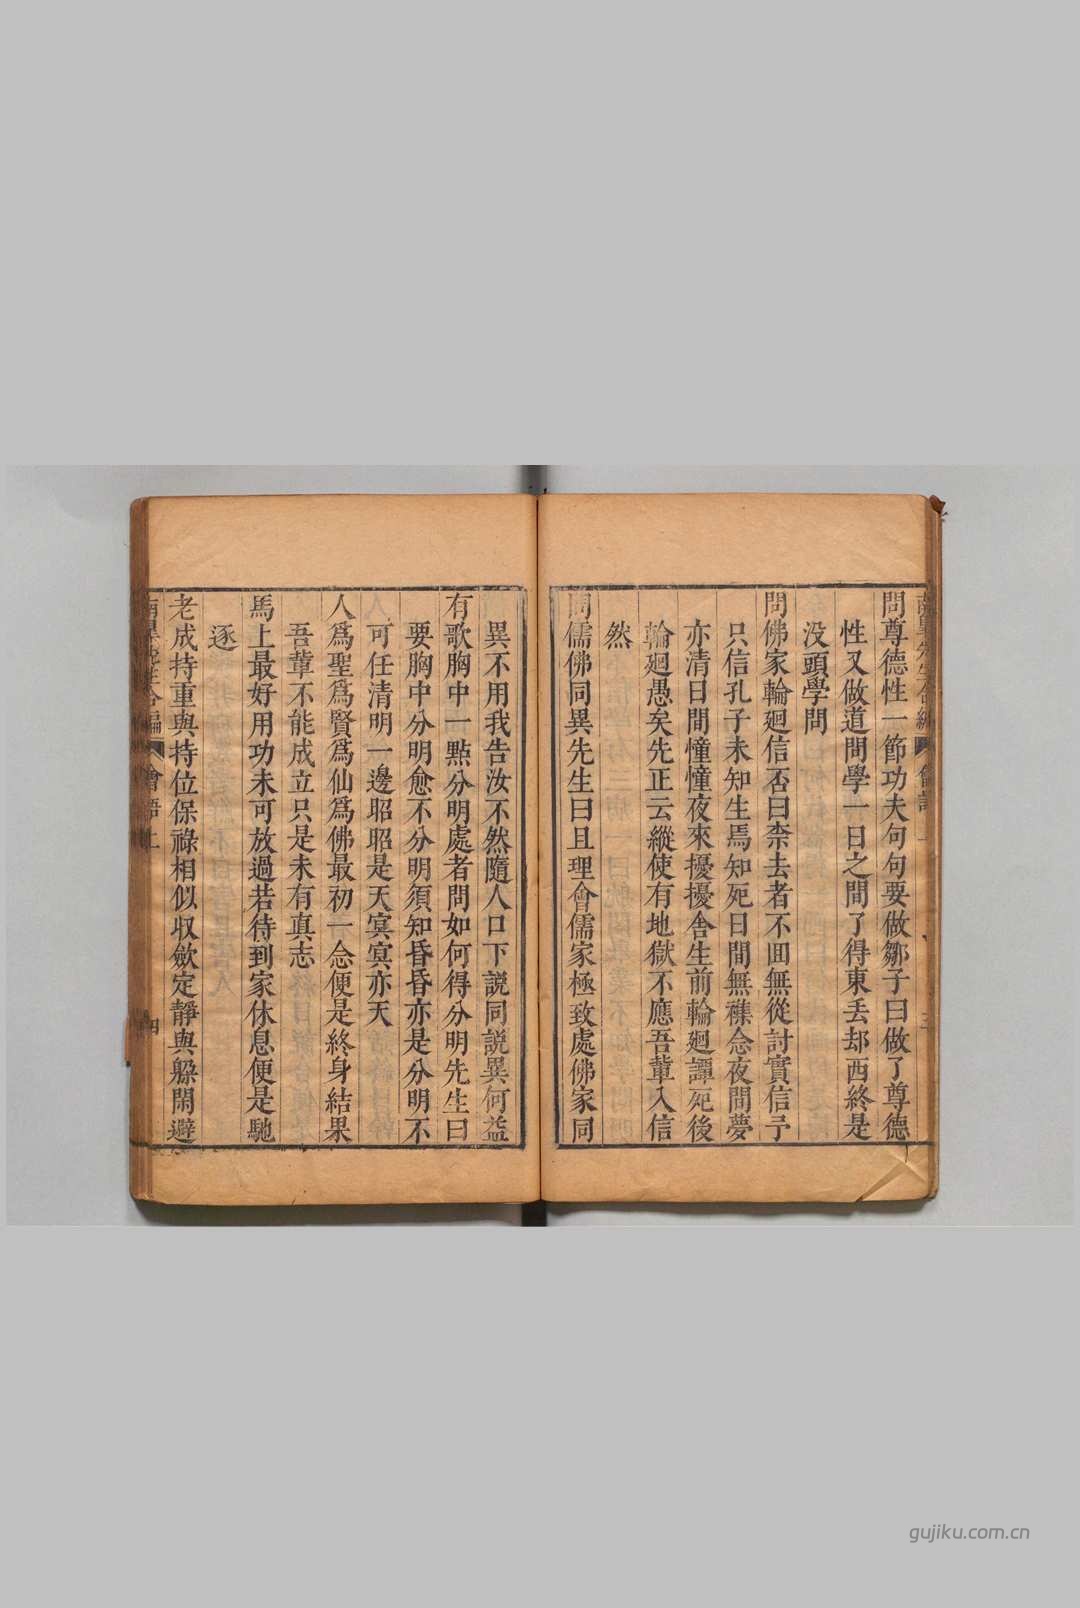 問尊德性一節功夫句句要做鄒子曰做了尊德
性又做道問學一日之間了得東丢却西終是
没頭學問
問佛家輪廻信否曰柰去者不囬無從討實信予
只信孔子未知生焉知死日間無襍念夜間夢
亦清日間憧憧夜來擾擾舍生前輪廻譚死後
輪廻愚矣先正云縱使有地獄不應吾輩入信
然
問儒佛同異先生曰且理會儒家極致處佛家同
異不用我告汝不然隨人口下説同説異何益
有歌胸中一點分明處者問如何得分明先生曰
要胸中分明愈不分明須知昏昏亦是分明不
可任清明一邊昭昭是天冥冥亦天
人爲聖爲賢爲仙爲佛最初一念便是終身結果
吾輩不能成立只是未有真志
馬上最好用功未可放過若待到家休息便是馳
逐
老成持重與持位保祿相似収斂定靜與躱閑避
會語上
四
gujiku.com.cn